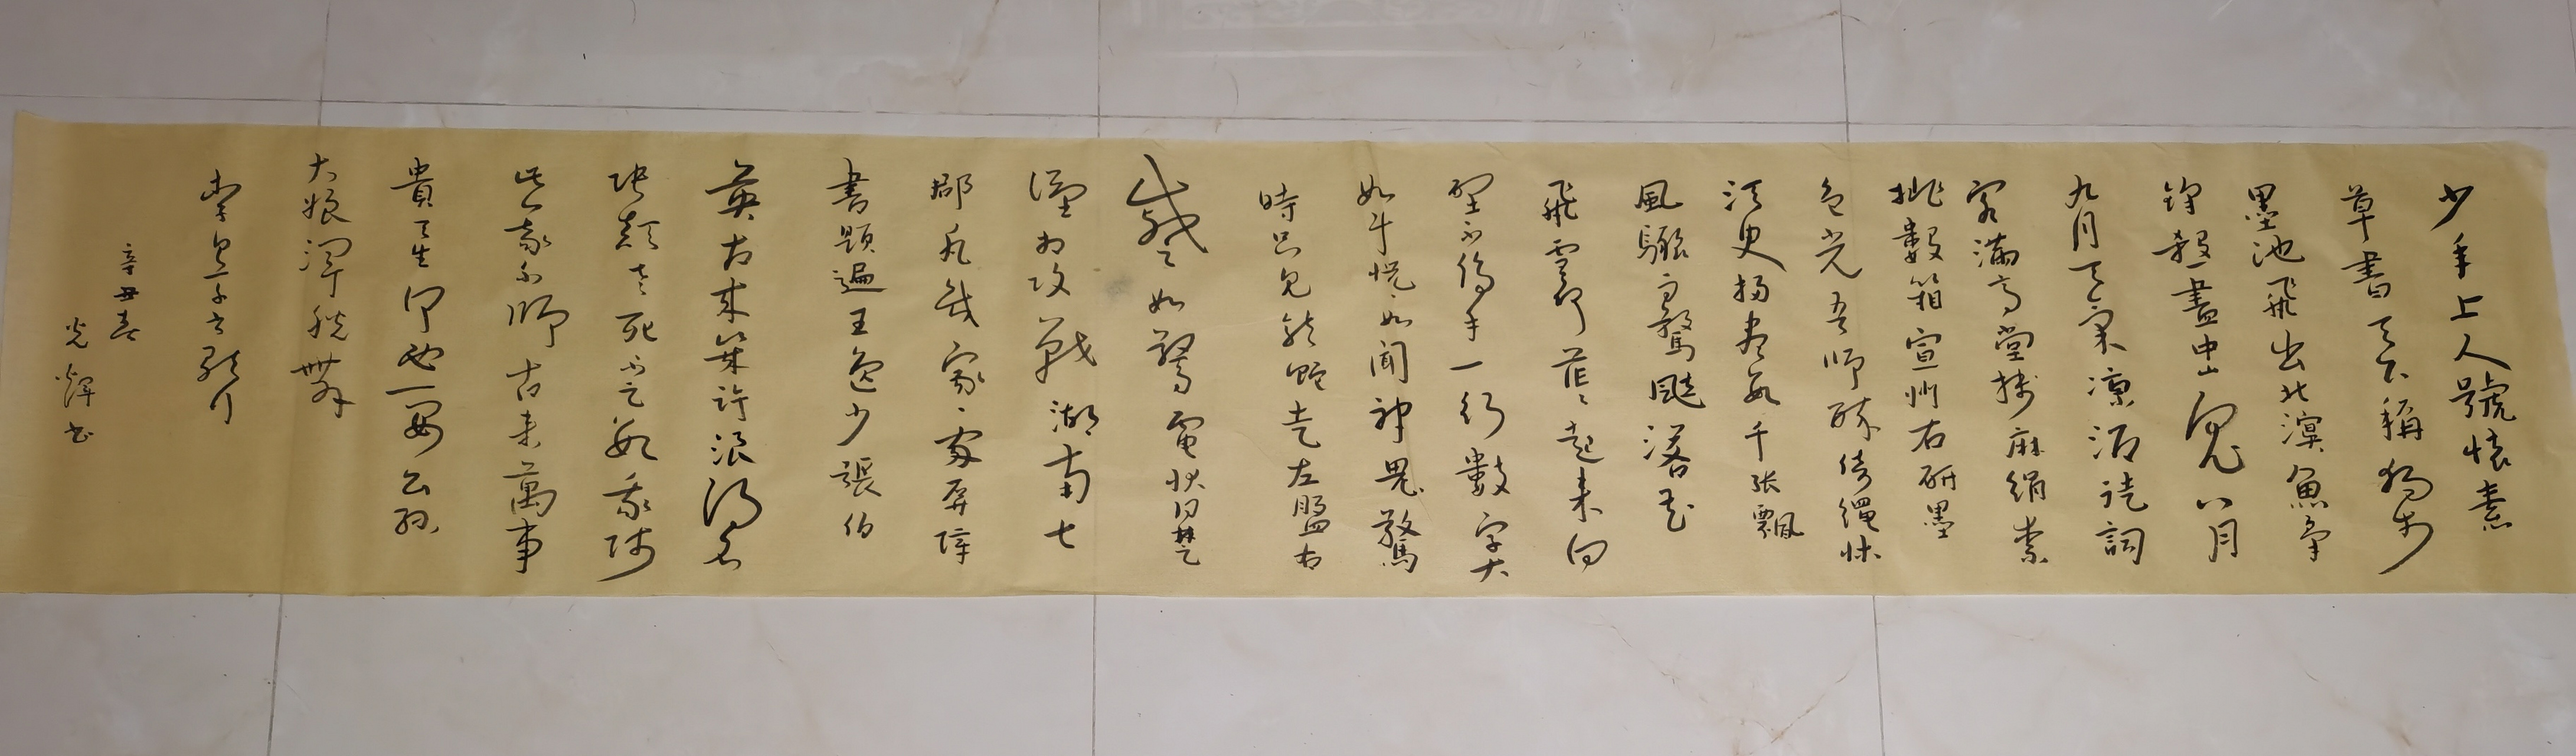 少年上人號懷素
草書天下稱獨步
墨池飛出北溟魚筆
鋒殺盡中山兔八月
九月天氣涼酒徒詞
客滿高堂牋麻絹素
排數箱宣州石硯墨
色光吾師醉後倚繩床
須臾掃盡數千張飄
風驟雨驚颯颯落花
飛雪何茫茫起來向
壁不停手一行數字大
如斗怳怳如聞神鬼驚
時時只見龍蛇走左盤右
蹙如驚電狀同楚
漢相攻戰湖南七
郡凡幾家家家屏障
書題遍王逸少張伯
英古來幾許浪得名
張顛老死不足數我師
此義不師古古來萬事
貴天生何必要公孫
大娘渾脫舞
李白草書歌行
辛丑春
光輝書